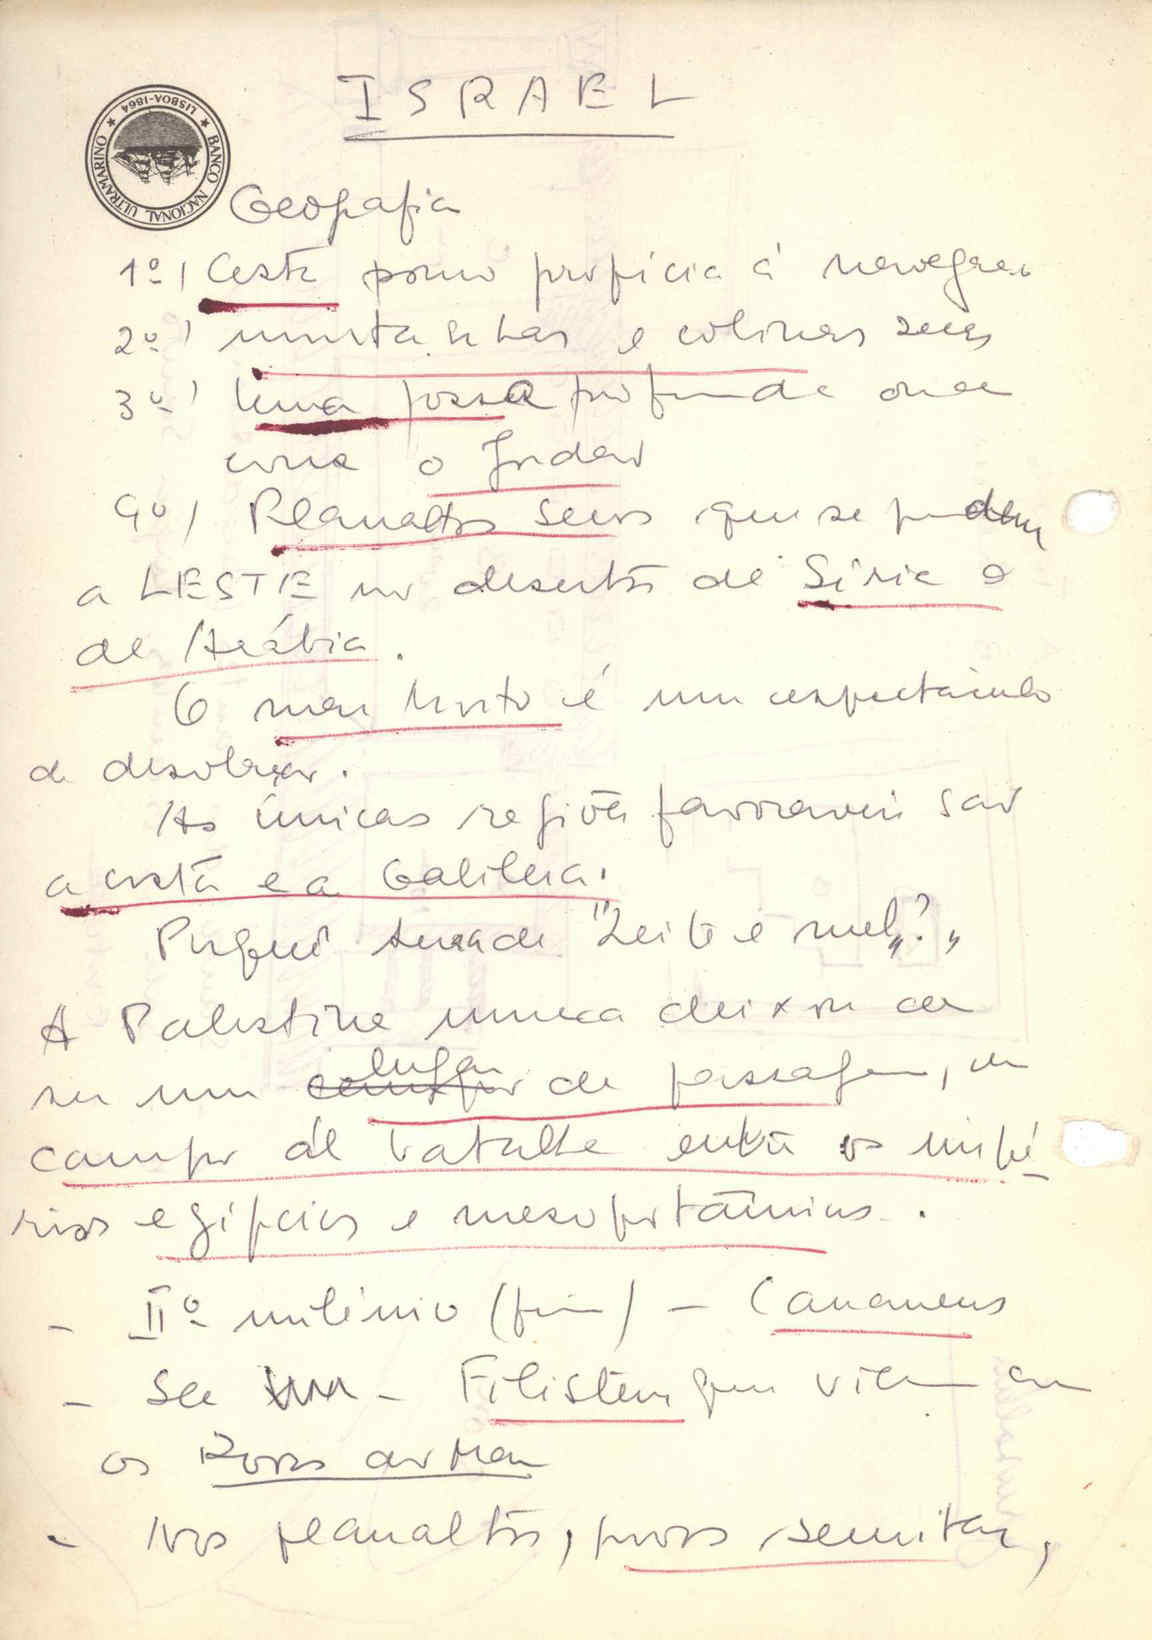 ISRAEL
BANCO NACIONAL ULTRAMARINO
LISBOA-1864
Geografia
1º) Costa pouco propícia à navegação
2º) montanhas e colinas secas
3º) Uma fossa profunda onde
corre o Jordão
4º) Planaltos secos que se perdem
a LESTE nos desertos da Síria e
da Arábia.
O mar Morto é um espectáculo
de desolação.
As únicas regiões favoráveis são
a costa e a Galileia.
Porquê terra de "Leite e mel"?
A Palestina nunca deixou de
ser um lugar de passagem, um
campo de batalha entre os impé-
rios egípcios e mesopotâmicos.
- IIº milénio (fim) - Cananeus
- Sec XII - Filisteus que vêm com
os Povos do Mar
- Nos planaltos, povos semitas,